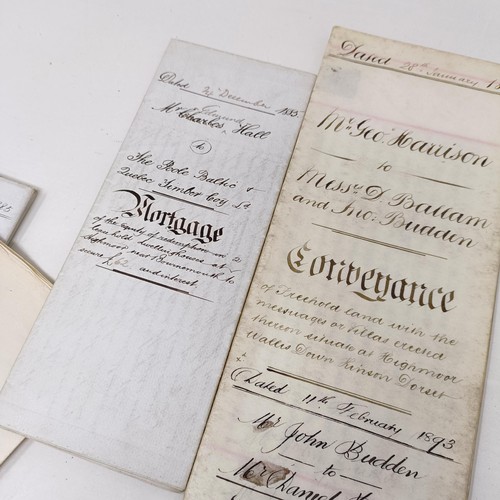 Dated December 1885
Mr Charles Hall
to
The Poole Baltic &
Quebec Timber Coy Ld.
Mortgage
of the equity of redemption in 2
leasehold dwellinghouses at
Highmoor near Bournemouth to
secure £62
and interest.
Dated 20th January
Mr. Geo. Harrison
to
Messrs. D. Ballam
and Jno: Budden
Conveyance
of Freehold land with the
messuages or Villas erected
thereon situate at Highmoor
Wallis Down Kinson Dorset
Dated 11th February 1893
Mr John Budden
to
Mr Daniel